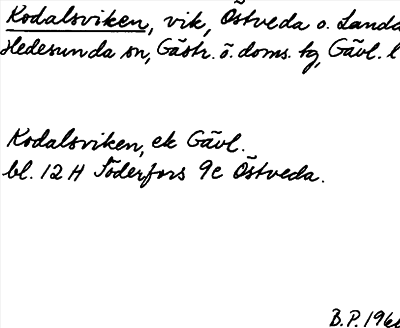 Kodalsviken, vik, Östveda o. Landa
Hedesunda sn, Gästr. ö. doms. tg, Gävl. l
Kodalsviken, ek Gävl.
bl. 12 H Söderfors 9c Östveda.
B.P. 196